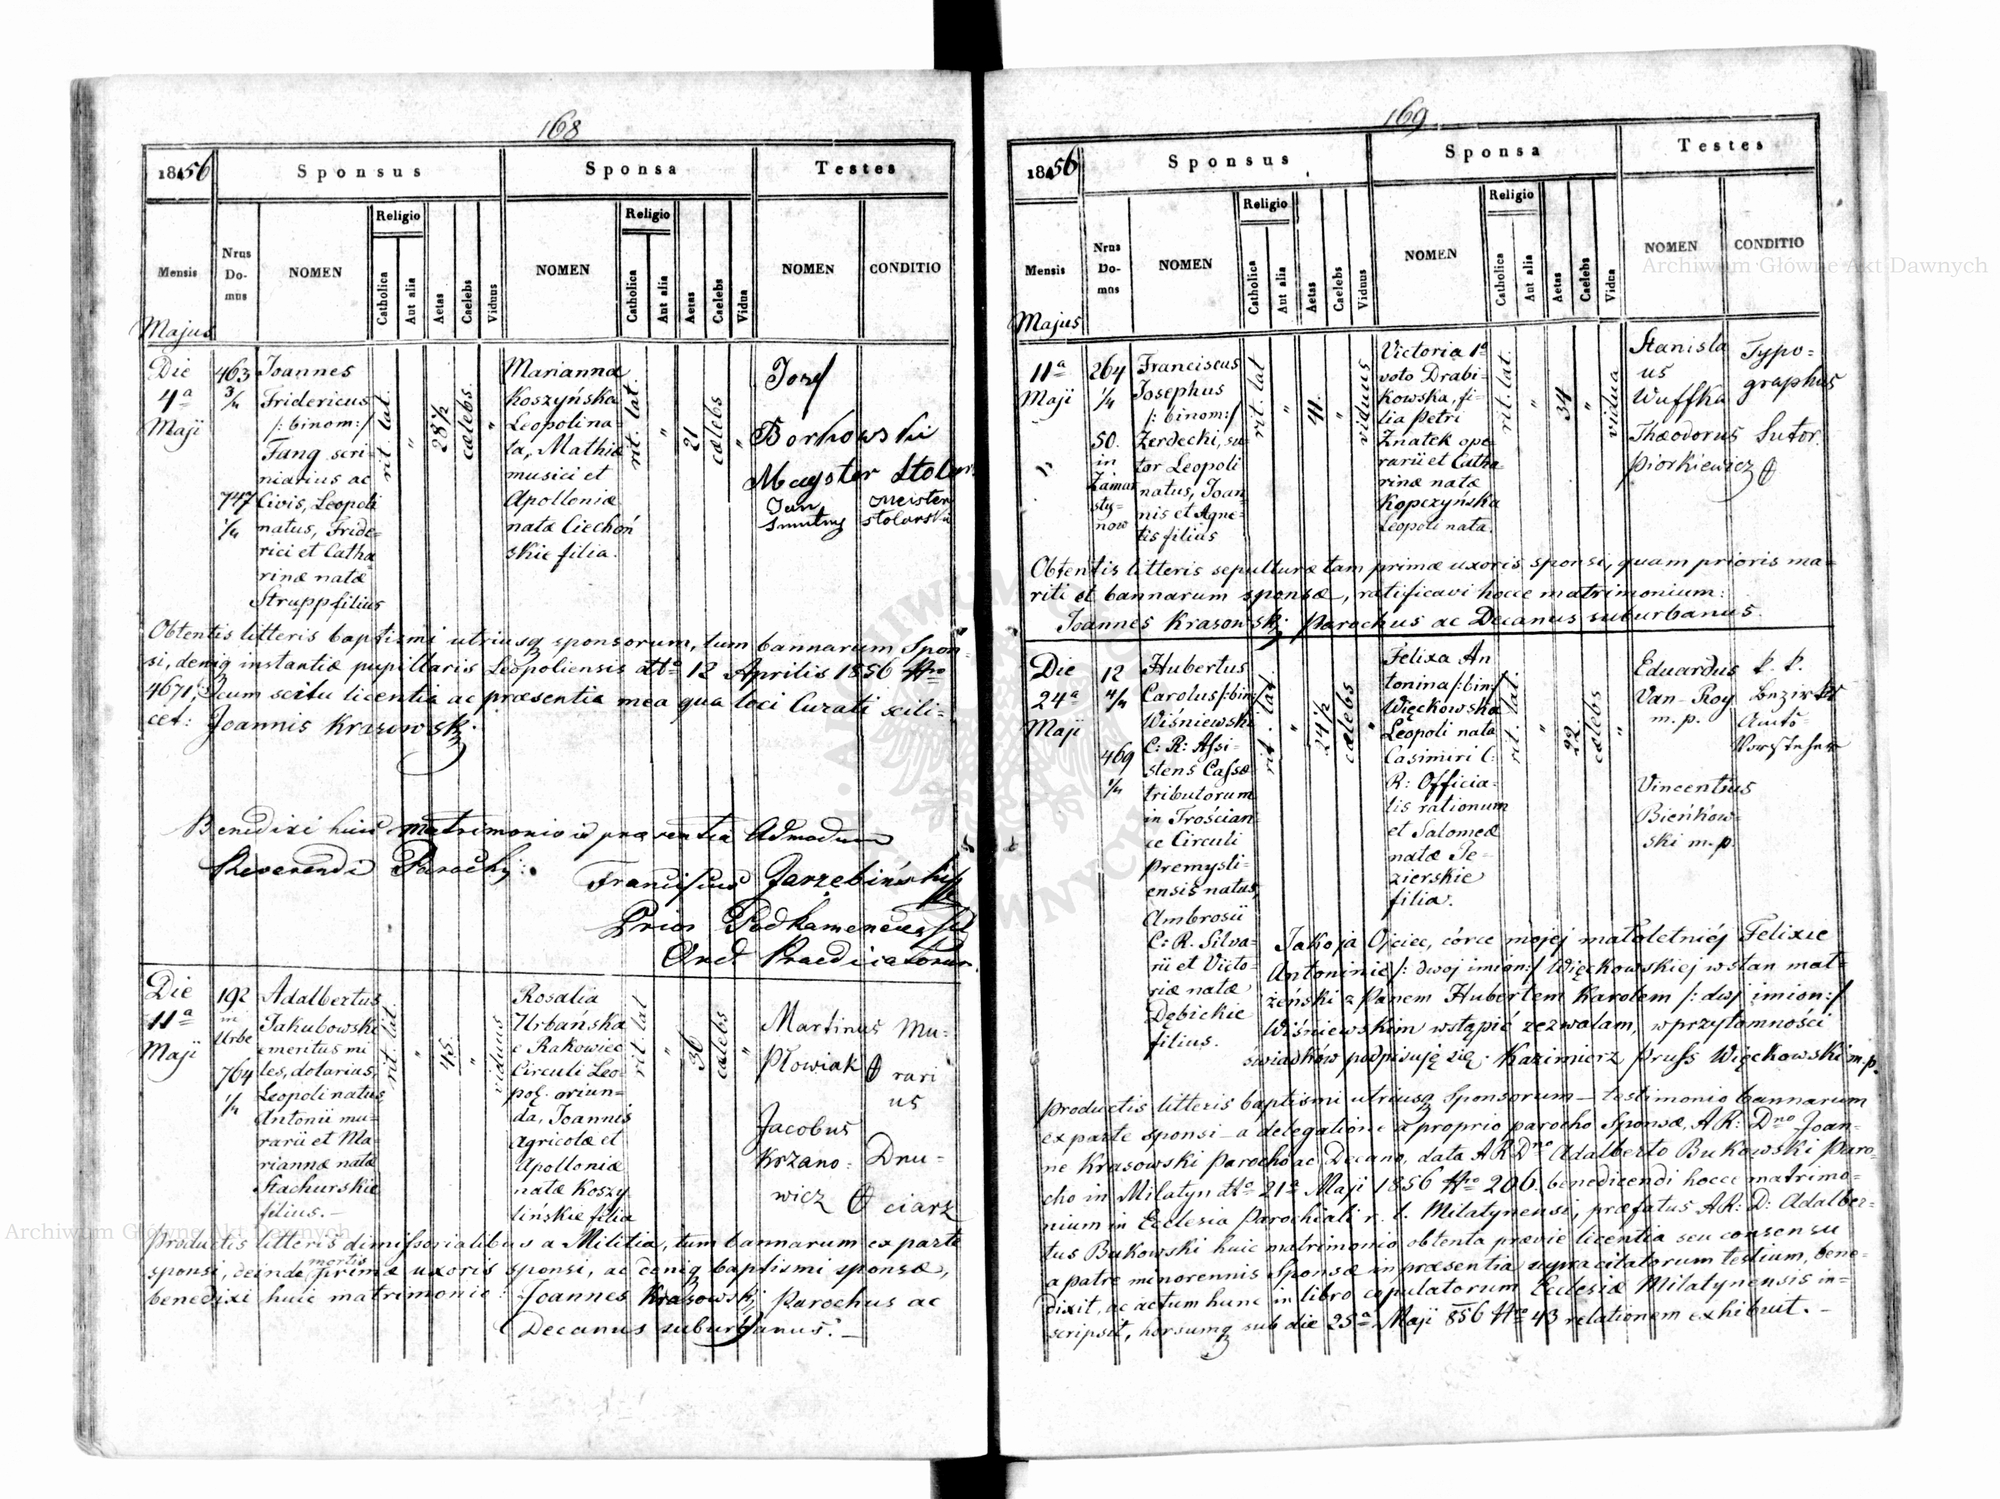 168
1856
Sponsus
Sponsa
Testes
Mensis
Nrus Domus
NOMEN
Religio
Catholica
Aut alia
Aetas
Caelebs
Viduus
NOMEN
Religio
Catholica
Aut alia
Aetas
Caelebs
Vidua
NOMEN
CONDITIO
Majus
Die
4a
Maji
463
3/4
747
1/4
Joannes
Fridericus
/: binom:/
Fang scri-
niarius ac
Civis, Leopoli
natus, Fride-
rici et Catha
rinæ natæ
Strupp filius
rit. lat.
"
28 1/2
cælebs
"
Marianna
Koszyńska
Leopoli na-
ta, Mathiæ
musici et
Apolloniæ
natæ Ciechoń
skie filia.
rit. lat.
"
21
cælebs
"
Józef
Borkowski
Mayster Stolar.
Jan
Meister
stolarski
Obtentis litteris baptismi utriusq sponsorum, tum bannarum Spon-
si, deniq instantiæ pupillaris Leopoliensis dtto 12 Aprilis 1856 Nro
4671, cum scitu licentia ac præsentia mea qua loci Curati scili-
cet: Joannis Krasowski.
Benedixi huic matrimonio in præsentia Admodum
Reverendi Parochi:
Franciscus Jarzębiński
Prior Podkamenecensis
Ord. Praedicatorum.
Die
11a
Maji
192
in
Urbe
764
1/4
Adalbertus
Jakubowski
emeritus mi
les, dotarius,
Leopoli natus
Antonii mu-
rarii et Ma-
riannæ natæ
Stachurskie
filius. —
rit. lat.
"
45.
"
viduus
Rosalia
Urbańska
e Rakowiec
Circuli Leo-
pol. oriun-
da, Joannis
agricolæ et
Apolloniæ
natæ Koszy
lińskie filia
rit. lat
"
36
cælebs
"
Martinus
Płowiak
Mu-
rari
us
Jacobus
Krzano-
wicz
Dru-
ciarz
Productis litteris dimissorialibus a Militia, tum bannarum ex parte
sponsi, deinde mortis primæ uxoris sponsi, ac deniq baptismi sponsæ,
benedixi huic matrimonio: Joannes Krasowski, Parochus ac
Decanus suburbanus. —
169
1856
Sponsus
Sponsa
Testes
Mensis
Nrus Domus
NOMEN
Religio
Catholica
Aut alia
Aetas
Caelebs
Viduus
NOMEN
Religio
Catholica
Aut alia
Aetas
Caelebs
Vidua
NOMEN
CONDITIO
Majus
11a
Maji
264
1/4
50.
in
Zamar
sty-
now
Franciscus
Josephus
/: binom:/
Zerdecki, su-
tor Leopoli
natus, Joan-
nis et Agne-
tis filius
rit. lat
"
41.
"
viduus
Victoria 1o
voto Drabi-
kowska, fi-
lia Petri
Znatek ope
rarii et Catha-
rinæ natæ
Kopczyńska
Leopoli nata.
rit. lat.
"
34
"
vidua
Stanisla
us
Wuffka
Typo-
graphus
Theodorus
Piorkiewicz
Sutor.
Obtentis litteris sepulturæ tam primæ uxoris sponsi, quam prioris ma-
riti et bannarum sponsæ, ratificavi hocce matrimonium:
Joannes Krasowski Parochus ac Decanus suburbanus.
Die
24a
Maji
12
4/4
469
1/4
Hubertus
Carolus /:bin:/
Wiśniewski
C: R: Assi-
stens Cassæ
tributorum
in Trościan-
ce Circuli
Premysli-
ensis natus,
Ambrosii
C: R. Silva-
rii et Victo-
riæ natæ
Dębickie
filius.
rit. lat
"
24 1/2
cælebs
"
Felixa An
tonina /:bin:/
Więckowska
Leopoli nata
Casimiri C:
R: Officia-
lis rationum
et Salomeæ
natæ Je-
zierskie
filia.
rit. lat.
"
22.
cælebs
"
Eduardus
Van-Roy
m. p.
k. k.
Bezirks
Amts-
Vorsteher
Vincentius
Bieńkow-
ski m. p.
Jako ja Ojciec, córce mojej małoletniéj Felixie
Antoninie /: dwoj imion:/ Więckowskiej w stan mał-
żeński z Panem Hubertem Karolem /: dwj imion:/
Wiśniewskim wstąpić zezwalam, w przytomności
świadków podpisuję się. Kazimierz Pruss Więckowski m. p.
Productis litteris baptismi utriusq Sponsorum — testimonio bannarum
ex parte sponsi — a delegatione a proprio parocho Sponsæ, A R: Dno Joan-
ne Krasowski Parocho ac Decano, data A R Dno Adalberto Bukowski Paro-
cho in Milatyn dto 21a Maji 1856 Nro 206. benedicendi hocce matrimo-
nium in Ecclesia Parochiali r. l. Milatynensi, præfatus A R: D: Adalber-
tus Bukowski huic matrimonio obtenta prævie licentia seu consensu
a patre minorennis Sponsæ in præsentia supracitatorum testium, bene-
dixit, ac actum hunc in libro copulatorum Ecclesiæ Milatynensis in-
scripsit, horsumq sub die 25a Maji 856 Nro 43 relationem exhibuit. —
Archiwum Główne Akt Dawnych
Archiwum Główne Akt Dawnych